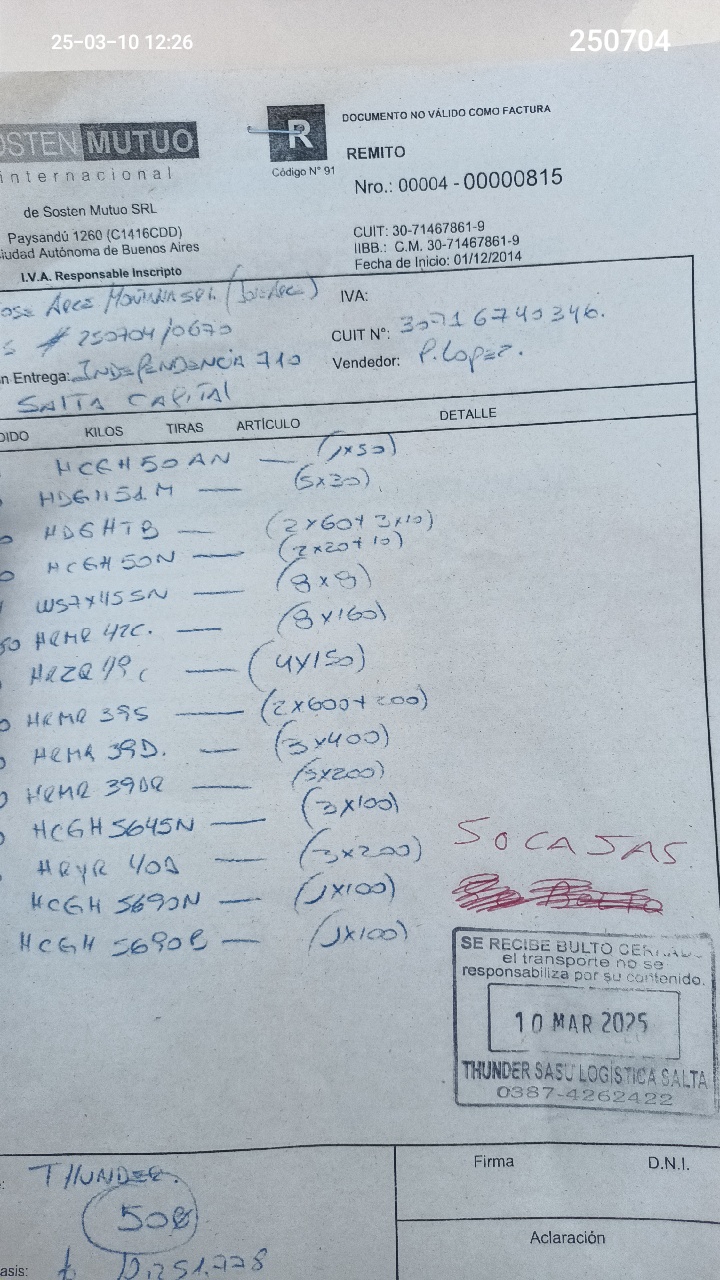 25-03-10 12:26
250704
OSTEN MUTUO
internacional
de Sosten Mutuo SRL
Paysandú 1260 (C1416CDD)
iudad Autónoma de Buenos Aires
I.V.A. Responsable Inscripto
R
Código N° 91
DOCUMENTO NO VÁLIDO COMO FACTURA
REMITO
Nro.: 00004 - 00000815
CUIT: 30-71467861-9
IIBB.: C.M. 30-71467861-9
Fecha de Inicio: 01/12/2014
IVA:
# 250704/0670
CUIT N°: 30716740346.
n Entrega: INDEPENDENCIA 710
Vendedor: P. Lopez.
SALTA CAPITAL
DIDO KILOS TIRAS ARTÍCULO DETALLE
HCGH50AN — (1x50)
HDGH51M — (5x30)
HDGHTB — (2x60+3x10)
HCGH50N — (2x20+10)
WS7X45SN — (8x8)
50 HRMR 42C. — (8x160)
HRZQ 49C — (4X150)
HRMR 39S — (2x600+200)
HRMR 39D. — (3x400)
HRMR 39DR — (5x200)
HCGH5645N — (3x100)
HRYR 40D — (3x200)
HCGH 5690N — (1x100)
HCGH 5690B — (1x100)
50 CAJAS
SE RECIBE BULTO CERRADO
el transporte no se
responsabiliza por su contenido.
10 MAR 2025
THUNDER SASU LOGÍSTICA SALTA
0387-4262422
THUNDER.
500
asis:
Firma D.N.I.
Aclaración